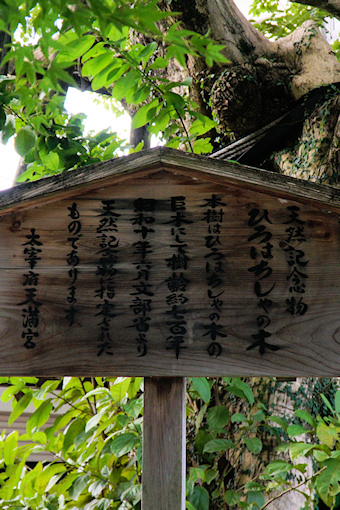 天然記念物
ひろはちしゃの木
本樹はひろはちしゃの木の
巨木にして樹齢約七百年
昭和十年六月文部省より
天然記念物指定された
ものであります
太宰府天満宮